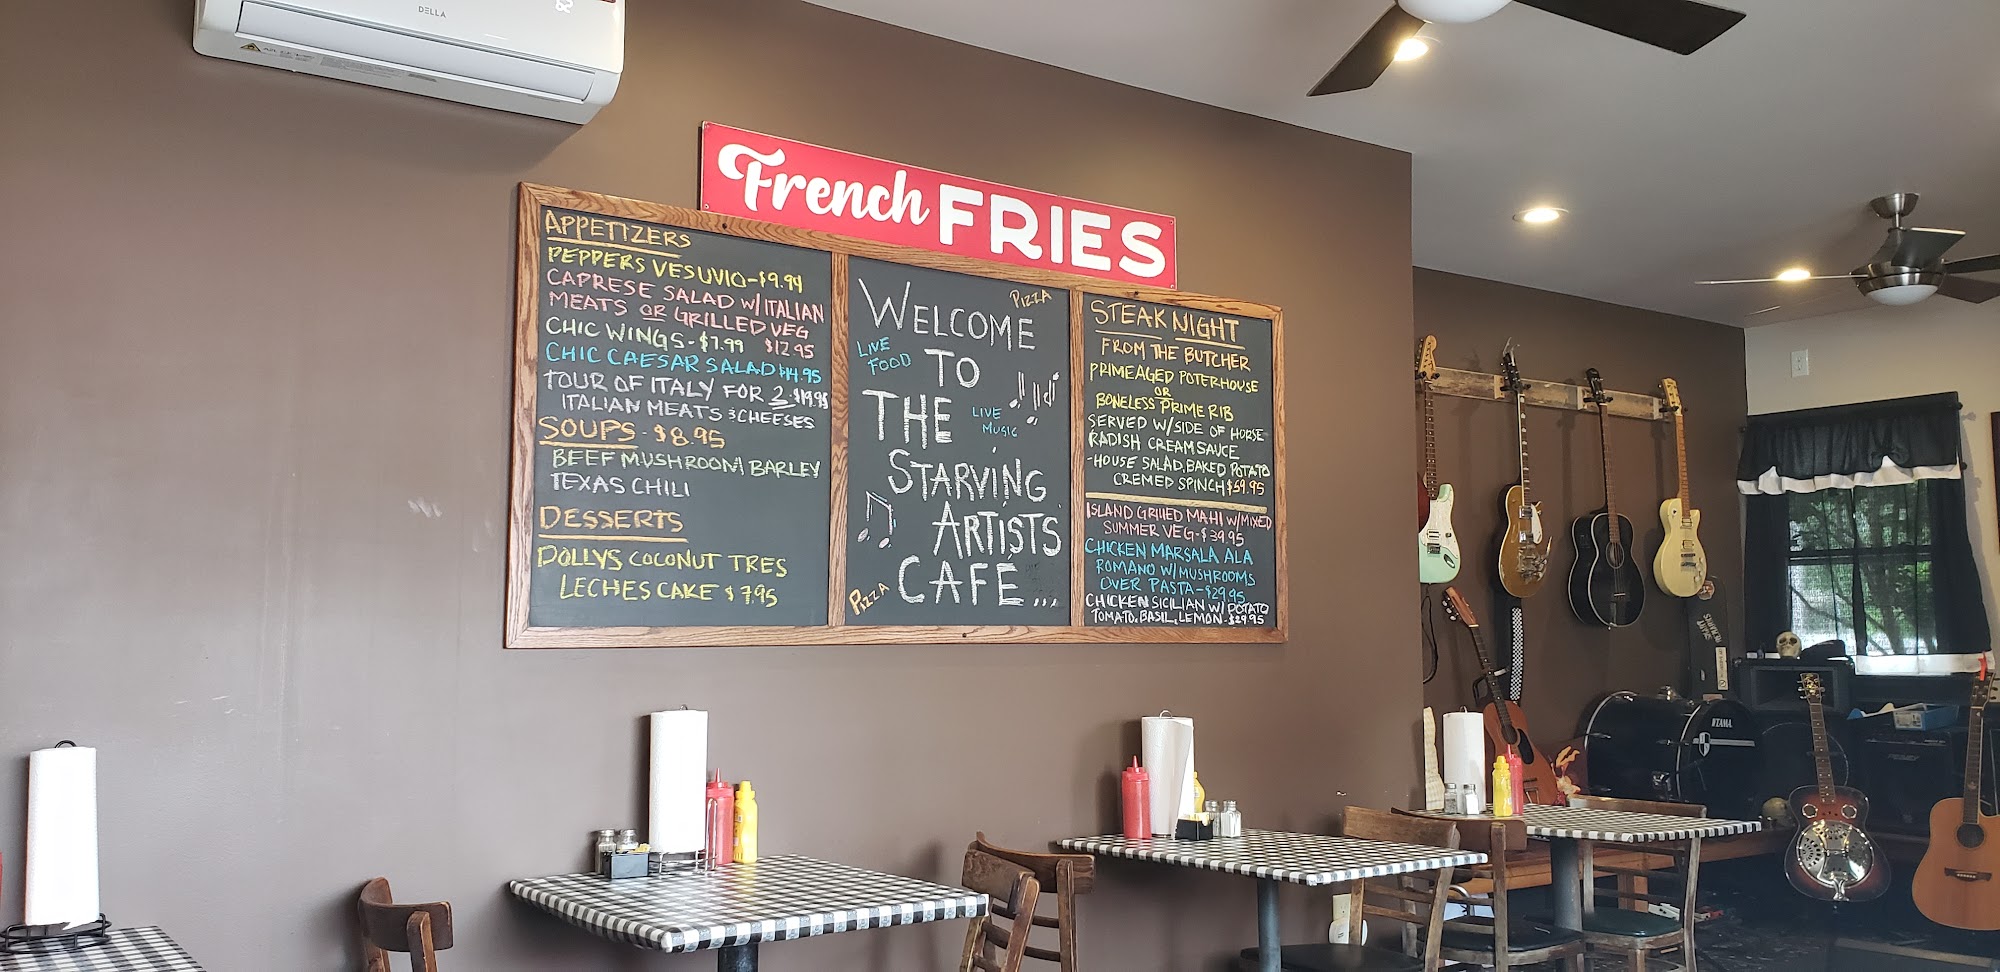 DELLA
French FRIES
APPETIZERS
PEPPERS VESUVIO-$9.94
CAPRESE SALAD W/ITALIAN
MEATS OR GRILLED VEG
$12.95
CHIC WINGS-$7.99
CHIC CAESAR SALAD $14.95
TOUR OF ITALY FOR 2-$19.95
ITALIAN MEATS & CHEESES
SOUPS-$8.95
BEEF MUSHROOM BARLEY
TEXAS CHILI
DESSERTS
DOLLYS COCONUT TRES
LECHES CAKE $7.95
PIZZA
WELCOME
LIVE
FOOD
TO
THE
LIVE
MUSIC
STARVING
ARTISTS
CAFE...
PIZZA
STEAK NIGHT
FROM THE BUTCHER
PRIME AGED POTERHOUSE
OR
BONELESS PRIME RIB
SERVED W/SIDE OF HORSE
RADISH CREAM SAUCE
-HOUSE SALAD, BAKED POTATO
CREMED SPINCH $59.95
ISLAND GRILLED MAHI W/MIXED
SUMMER VEG-$39.95
CHICKEN MARSALA ALA
ROMANO W/MUSHROOMS
OVER PASTA-$29.95
CHICKEN SICILIAN W/POTATO
TOMATO, BASIL, LEMON-$29.95
TAMA